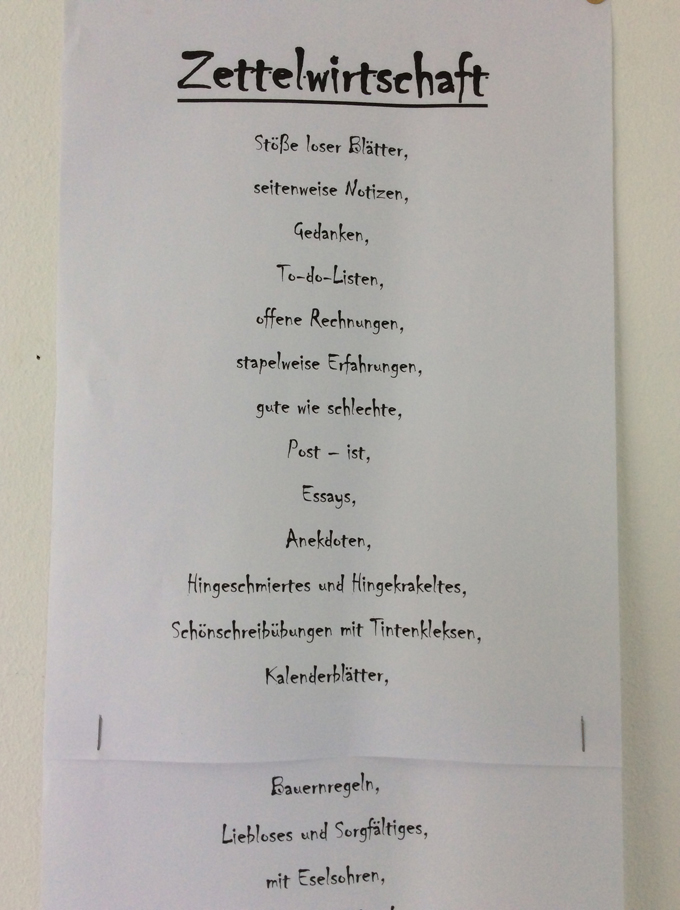 Zettelwirtschaft
Stöße loser Blätter,
seitenweise Notizen,
Gedanken,
To-do-Listen,
offene Rechnungen,
stapelweise Erfahrungen,
gute wie schlechte,
Post – ist,
Essays,
Anekdoten,
Hingeschmiertes und Hingekrakeltes,
Schönschreibübungen mit Tintenkleksen,
Kalenderblätter,
Bauernregeln,
Liebloses und Sorgfältiges,
mit Eselsohren,